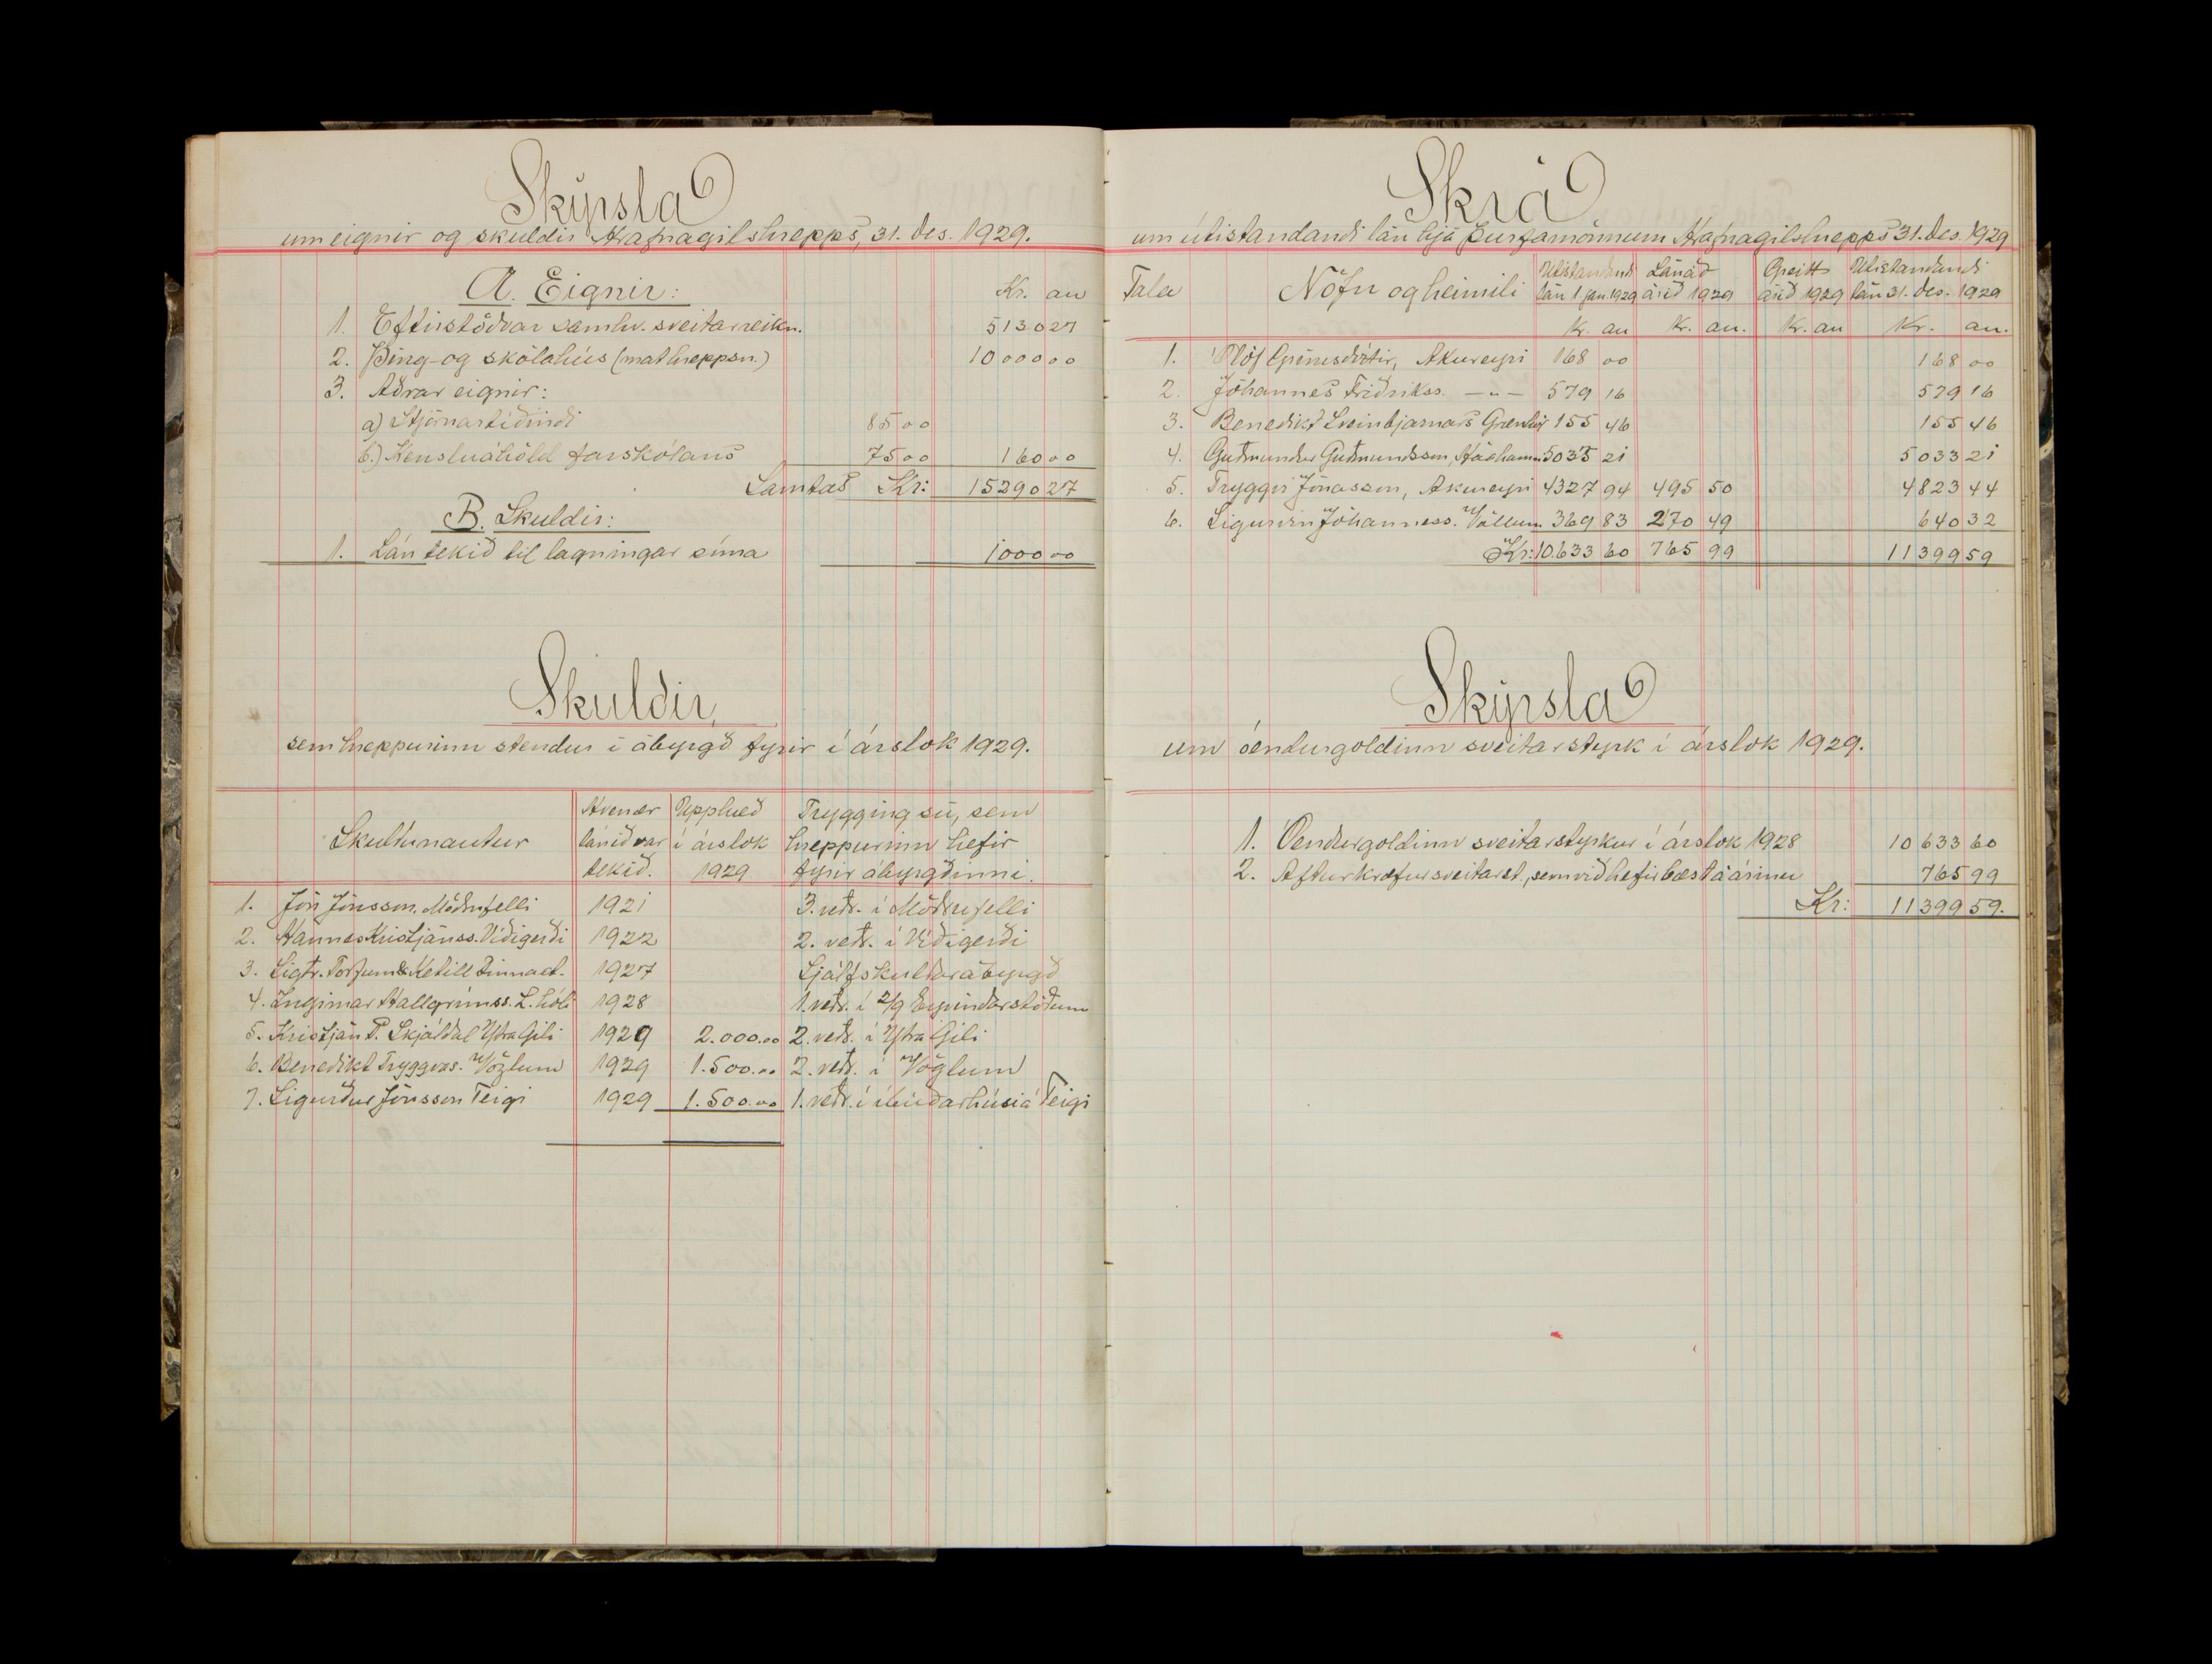 Skýrsla
um eignir og skuldir Hrafnagilshrepps, 31. des. 1929.
A. Eignir:
Kr. au
1. Eftirstöðvar samkv. sveitarreikn. 5130 27
2. Þing- og skólahús (mat hreppsn.) 10000 00
3. Aðrar eignir:
a) Stjórnartíðindi 85 00
b.) Kensluáhöld farskólans 75 00 160 00
Samtals Kr: 15290 27
B. Skuldir:
1. Lán tekið til lagningar síma 1000 00
Skuldir,
sem hreppurinn stendur í ábyrgð fyrir í árslok 1929.
Skuldunautur Hvenær lánið var tekið. Upphæð í árslok 1929 Trygging sú, sem hreppurinn hefir fyrir ábyrgðinni.
1. Jón Jónsson, Möðrufelli 1921 3. veðr. í Möðrufelli
2. Hannes Kristjánss. Víðigerði 1922 2. veðr. í Víðigerði
3. Sigtr. Þorst. & Ketill 1927 Sjálfskuldarábyrgð
4. Ingimar Hallgrímss. L. hóli 1928 1. veðr. í 2/9 Eyvindarstöðum
5. Kristján P. Skjáldal Ytra Gili 1929 2.000.00 2. veðr. í Ytra Gili
6. Benedikt Tryggvas. Vöglum 1929 1.500.00 2. veðr. í Vöglum
7. Sigurður Jónsson Teigi 1929 1.500.00 1. veðr. í íbúðarhúsi á Teigi
Skrá
um útistandandi lán hjá þurfamönnum Hrafnagilshrepps 31. des. 1929
Tala Nöfn og heimili Útistandandi lán 1 jan. 1929 Lánað árið 1929 Greitt árið 1929 Útistandandi lán 31. des. 1929
Kr. au Kr. au. Kr. au Kr. au.
1. Ólöf Grímsdóttir, Akureyri 168 00 168 00
2. Jóhannes Friðrikss. —"— 579 16 579 16
3. Benedikt Sveinbjarnars 155 46 155 46
4. Guðmundur Guðmundsson, 5033 21 5033 21
5. Tryggvi Jónasson, Akureyri 4327 94 495 50 4823 44
6. Sigurvin Jóhanness. Völlum 369 83 270 49 640 32
Kr: 10.633 60 765 99 11399 59
Skýrsla
um óendurgoldinn sveitarstyrk í árslok 1929.
1. Óendurgoldinn sveitarstyrkur í árslok 1928 10633 60
2. Afturkræfur sveitarst., sem við hefir bæst á árinu 765 99
Kr: 11399 59.